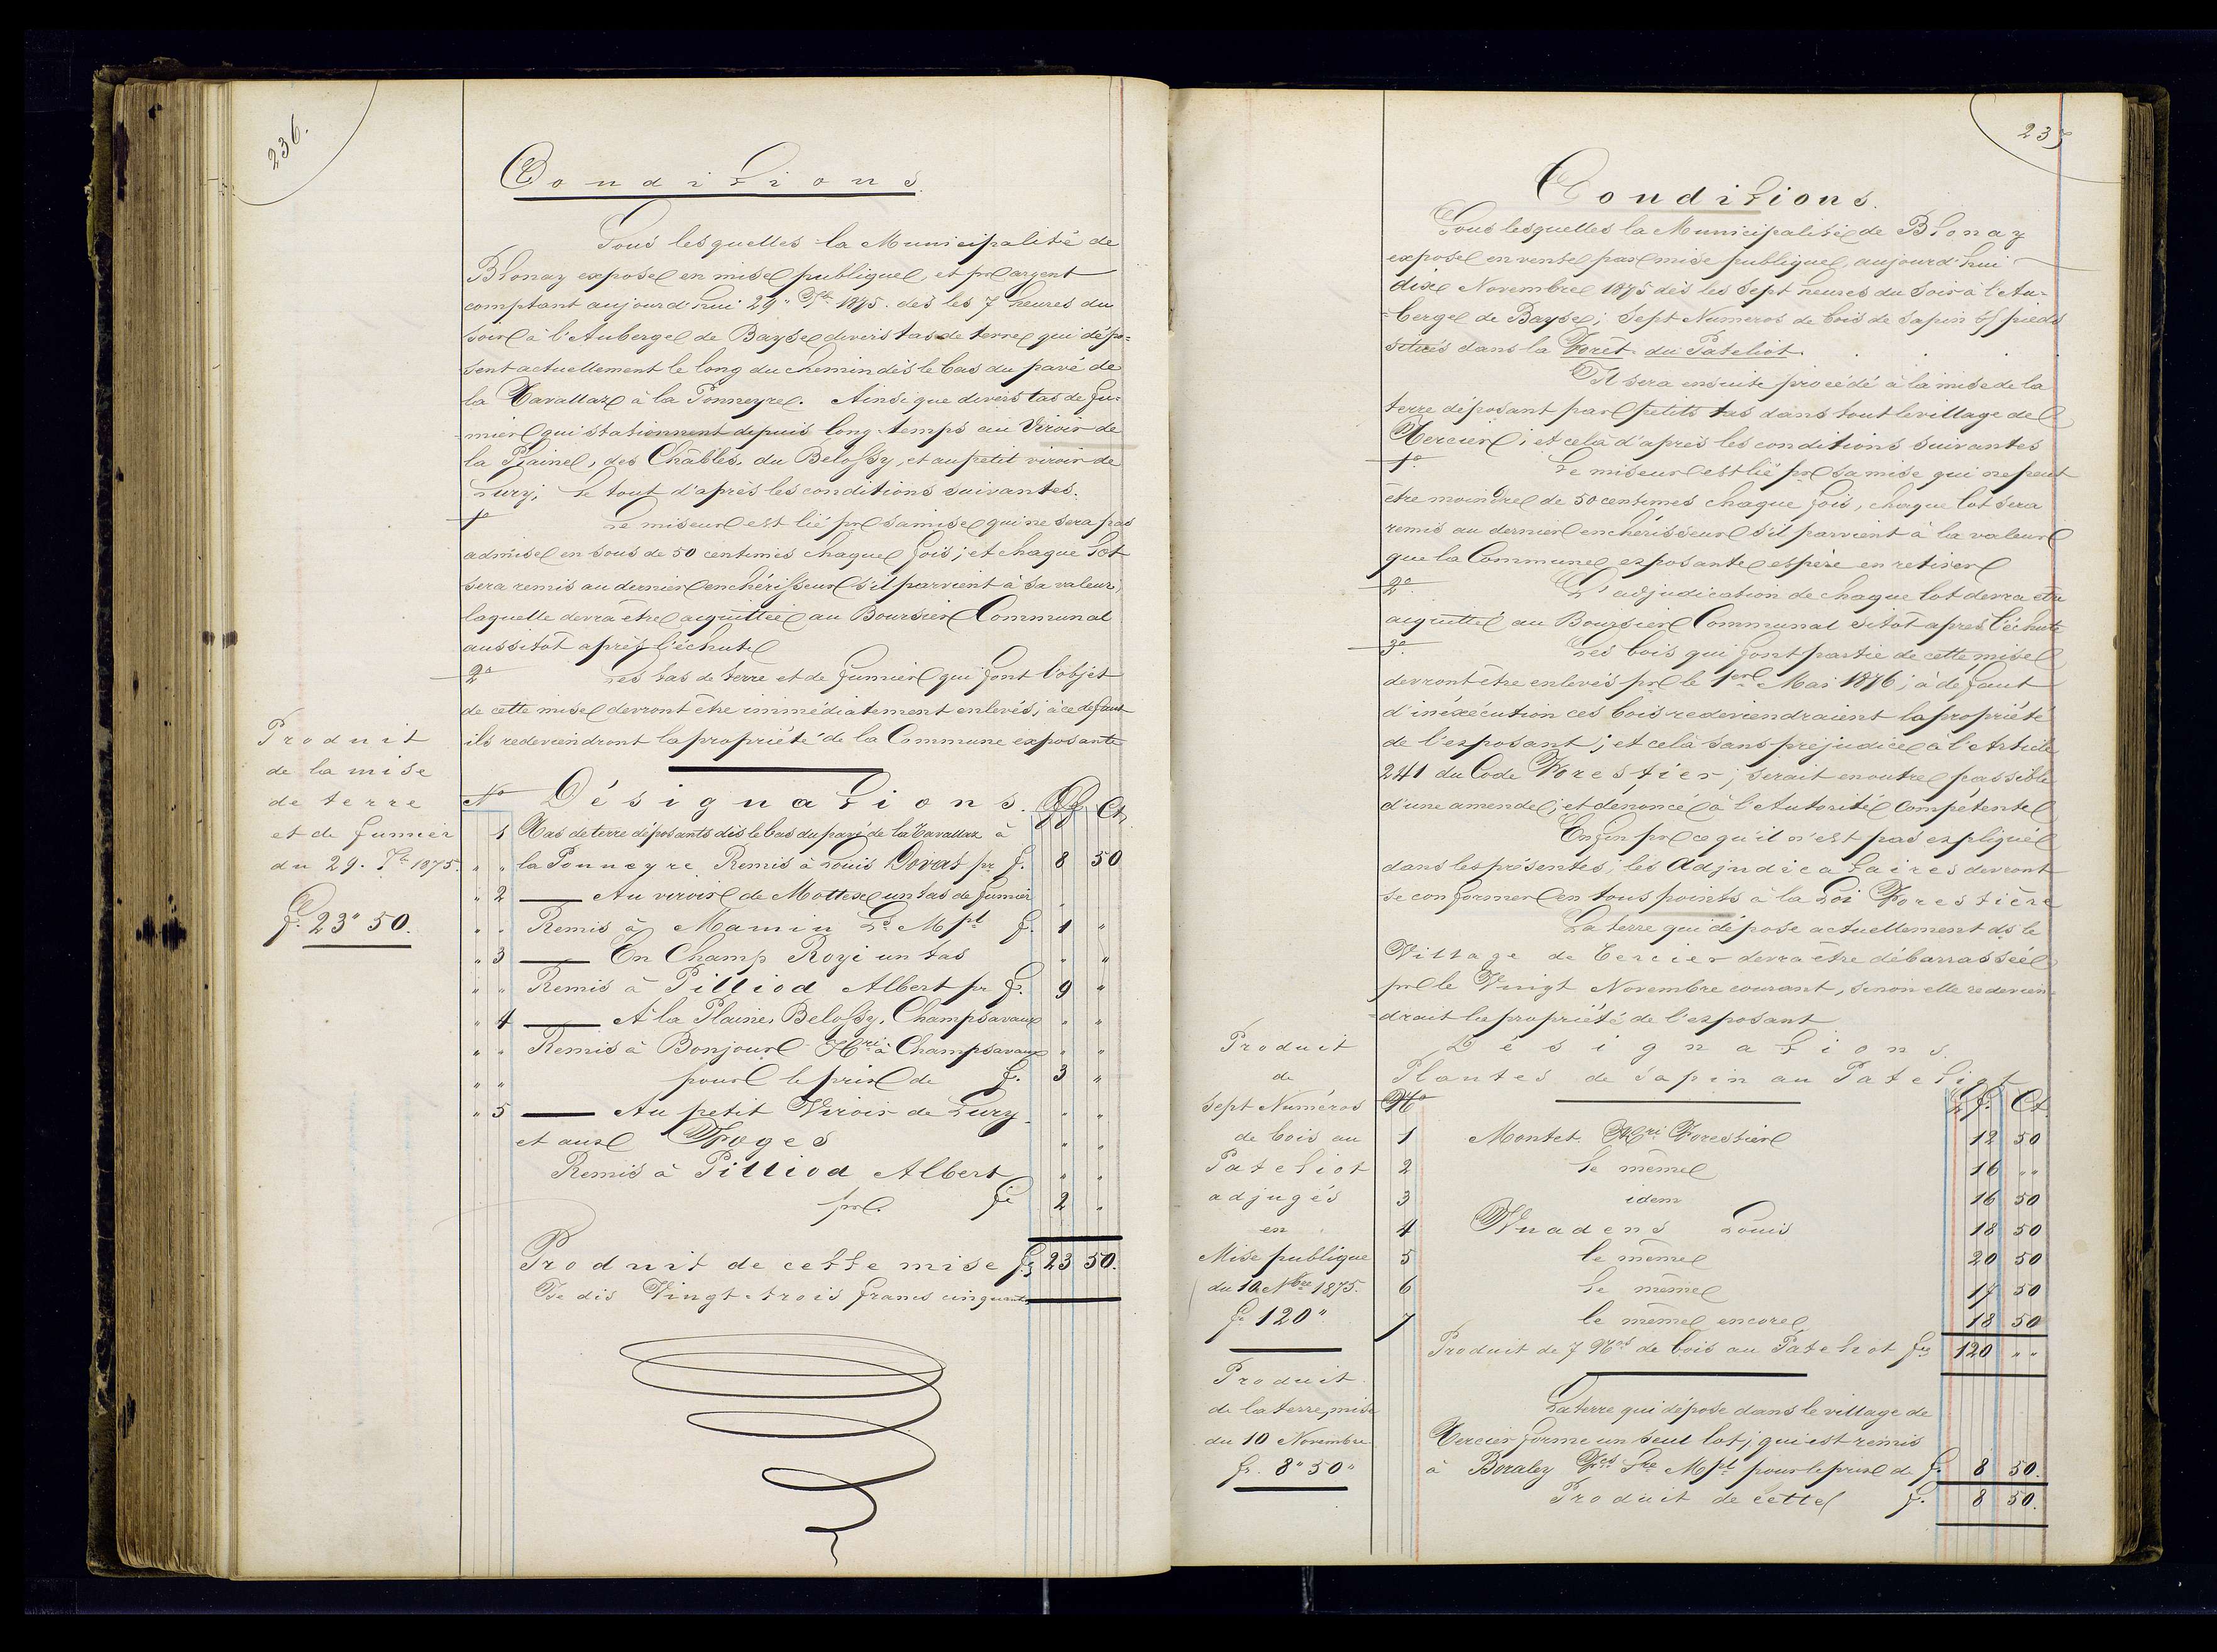 236.
Conditions.
Sous lesquelles la Municipalité de
Blonay expose en mise publique, et pr argent
comptant aujourd'hui 29" 1875. dès les 7 heures du
soir à l'Auberge de Bayse divers tas de terre qui dépo=
sent actuellement le long du chemin dès le bas du pavé de
la Tavallaz à la Ponneyre. Ainsi que divers tas de fu=
mier qui stationnent depuis long-temps au Viroir de
la Plaine, des Châbles, du Belossy, et au petit viroir de
Lury; le tout d'après les conditions suivantes.
1o Le miseur est lié pr sa mise qui ne sera pas
admise en sous de 50 centimes chaque fois; et chaque Lot
sera remis au dernier enchérisseur s'il parvient à sa valeur,
laquelle devra être acquittée au Boursier Communal
aussitôt après l'échute
2o Les tas de terre et de fumier qui font l'objet
de cette mise devront être immédiatement enlevés; à ce defaut
ils redeviendront la propriété de la Commune exposante
Produit
de la mise
de terre
et de fumier
du 29. 1875.
f. 23" 50.
No Désignations. ff Ct
1 Tas de terre déposants dès le bas du pavé de la Tavallaz à
" " la Ponneyre. Remis à Louis Dovat pr f. 8 50
" 2 — Au viroir de Mottex un tas de fumier
" " Remis à Mamin Ls Mpl f. 1 "
" 3 — En Champ Royi un tas " "
" " Remis à Pilliod Albert pr f. 9 "
" 4 — A la Plaine, Belossy, Champsavaux " "
" " Remis à Bonjour Hri à Champsavaux " "
" " pour le prix de f. 3 "
" 5 — Au petit Viroir de Lury " "
et aux Foges " "
Remis à Pilliod Albert " "
pr. f. 2 "
Produit de cette mise f. 23 50.
Je dis Vingt-trois francs cinquante
235
Conditions.
Sous lesquelles la Municipalité de Blonay
expose en vente par mise publique, aujourd'hui
dix Novembre 1875 dès les sept heures du soir à l'Au=
=berge de Bayse; sept Numéros de bois de sapin s/ pieds
situés dans la Forêt du Pateliot.
Il sera ensuite procédé à la mise de la
terre déposant par petits tas dans tout le village de
Tercier; et celà d'après les conditions suivantes
1o. Le miseur est lié pr sa mise qui ne peut
être moindre de 50 centimes chaque fois, chaque lot sera
remis au dernier enchérisseur s'il parvient à la valeur
que la Commune exposante espère en retirer
2o. L'adjudication de chaque lot devra être
acquittée au Boursier Communal sitôt après l'échute
3o. Les bois qui font partie de cette mise
devront être enlevés pr le 1er Mai 1876; à defaut
d'inéxécution ces bois redeviendraient la propriété
de l'exposant; et celà sans préjudice à l'Article
241 du Code Forestier; serait en outre passible
d'une amende; et dénoncé à l'Autorité Compétente
Enfin pr ce qu'il n'est pas expliqué
dans les présentes, les Adjudicataires devront
se conformer en tous points à la Loi Forestière
La terre qui dépose actuellement ds le
Village de Tercier devra être débarrassée
pr le Vingt Novembre courant, sinon elle redevien=
drait la propriété de l'exposant
Désignations.
Plantes de sapin au Pateliot
Produit
de
sept Numéros
de bois au
Pateliot
adjugés
en
Mise publique
du 10 Nbre 1875.
f. 120"
No f. Ct.
1 Montet Hri Forestier 12 50
2 le même 16 " "
3 idem 16 50
4 Vuadens Louis 18 50
5 le même 20 50
6 le même 17 50
7 le même encore 18 50
Produit de 7 Nos de bois au Pateliot fs 120 " "
Produit
de la terre, mise
du 10 Novembre
f. 8" 50"
La terre qui dépose dans le village de
Tercier forme un seul lot; qui est remis
à Boraley Mpl pour le prix de f. 8 50.
Produit de cette f. 8 50.